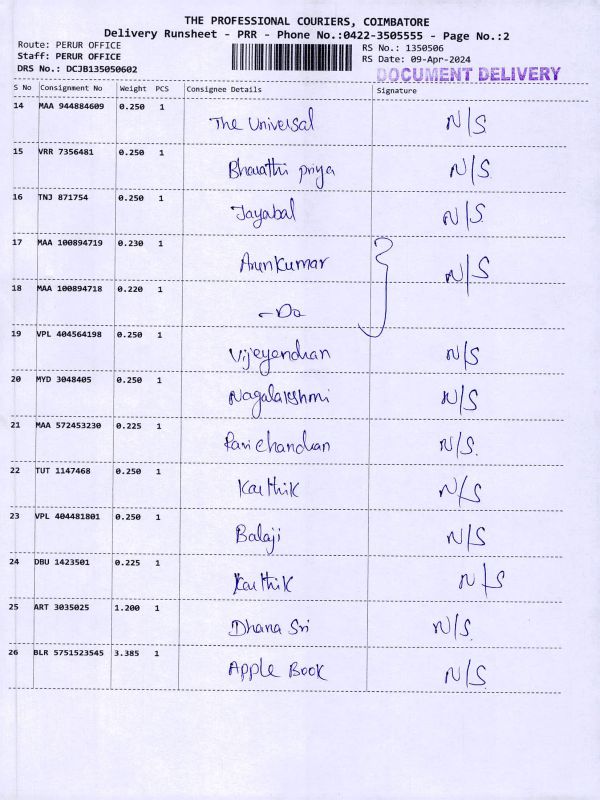 THE PROFESSIONAL COURIERS, COIMBATORE
Delivery Runsheet - PRR - Phone No.:0422-3505555 - Page No.:2
Route: PERUR OFFICE RS No.: 1350506
Staff: PERUR OFFICE RS Date: 09-Apr-2024
DRS No.: DCJB135050602 DOCUMENT DELIVERY
S No Consignment No Weight PCS Consignee Details Signature
14 MAA 944884609 0.250 1 The Universal N/S
15 VRR 7356481 0.250 1 Bharathi priya N/S
16 TNJ 871754 0.250 1 Jayabal N/S
17 MAA 100894719 0.230 1 Arunkumar N/S
18 MAA 100894718 0.220 1 -Do
19 VPL 404564198 0.250 1 Vijeyendran N/S
20 MYD 3048405 0.250 1 Nagalakshmi N/S
21 MAA 572453230 0.225 1 Ravichandran N/S.
22 TUT 1147468 0.250 1 Karthik N/S
23 VPL 404481801 0.250 1 Balaji N/S
24 DBU 1423501 0.225 1 Karthik N/S
25 ART 3035025 1.200 1 Dhana Sri N/S.
26 BLR 5751523545 3.385 1 Apple Book N/S